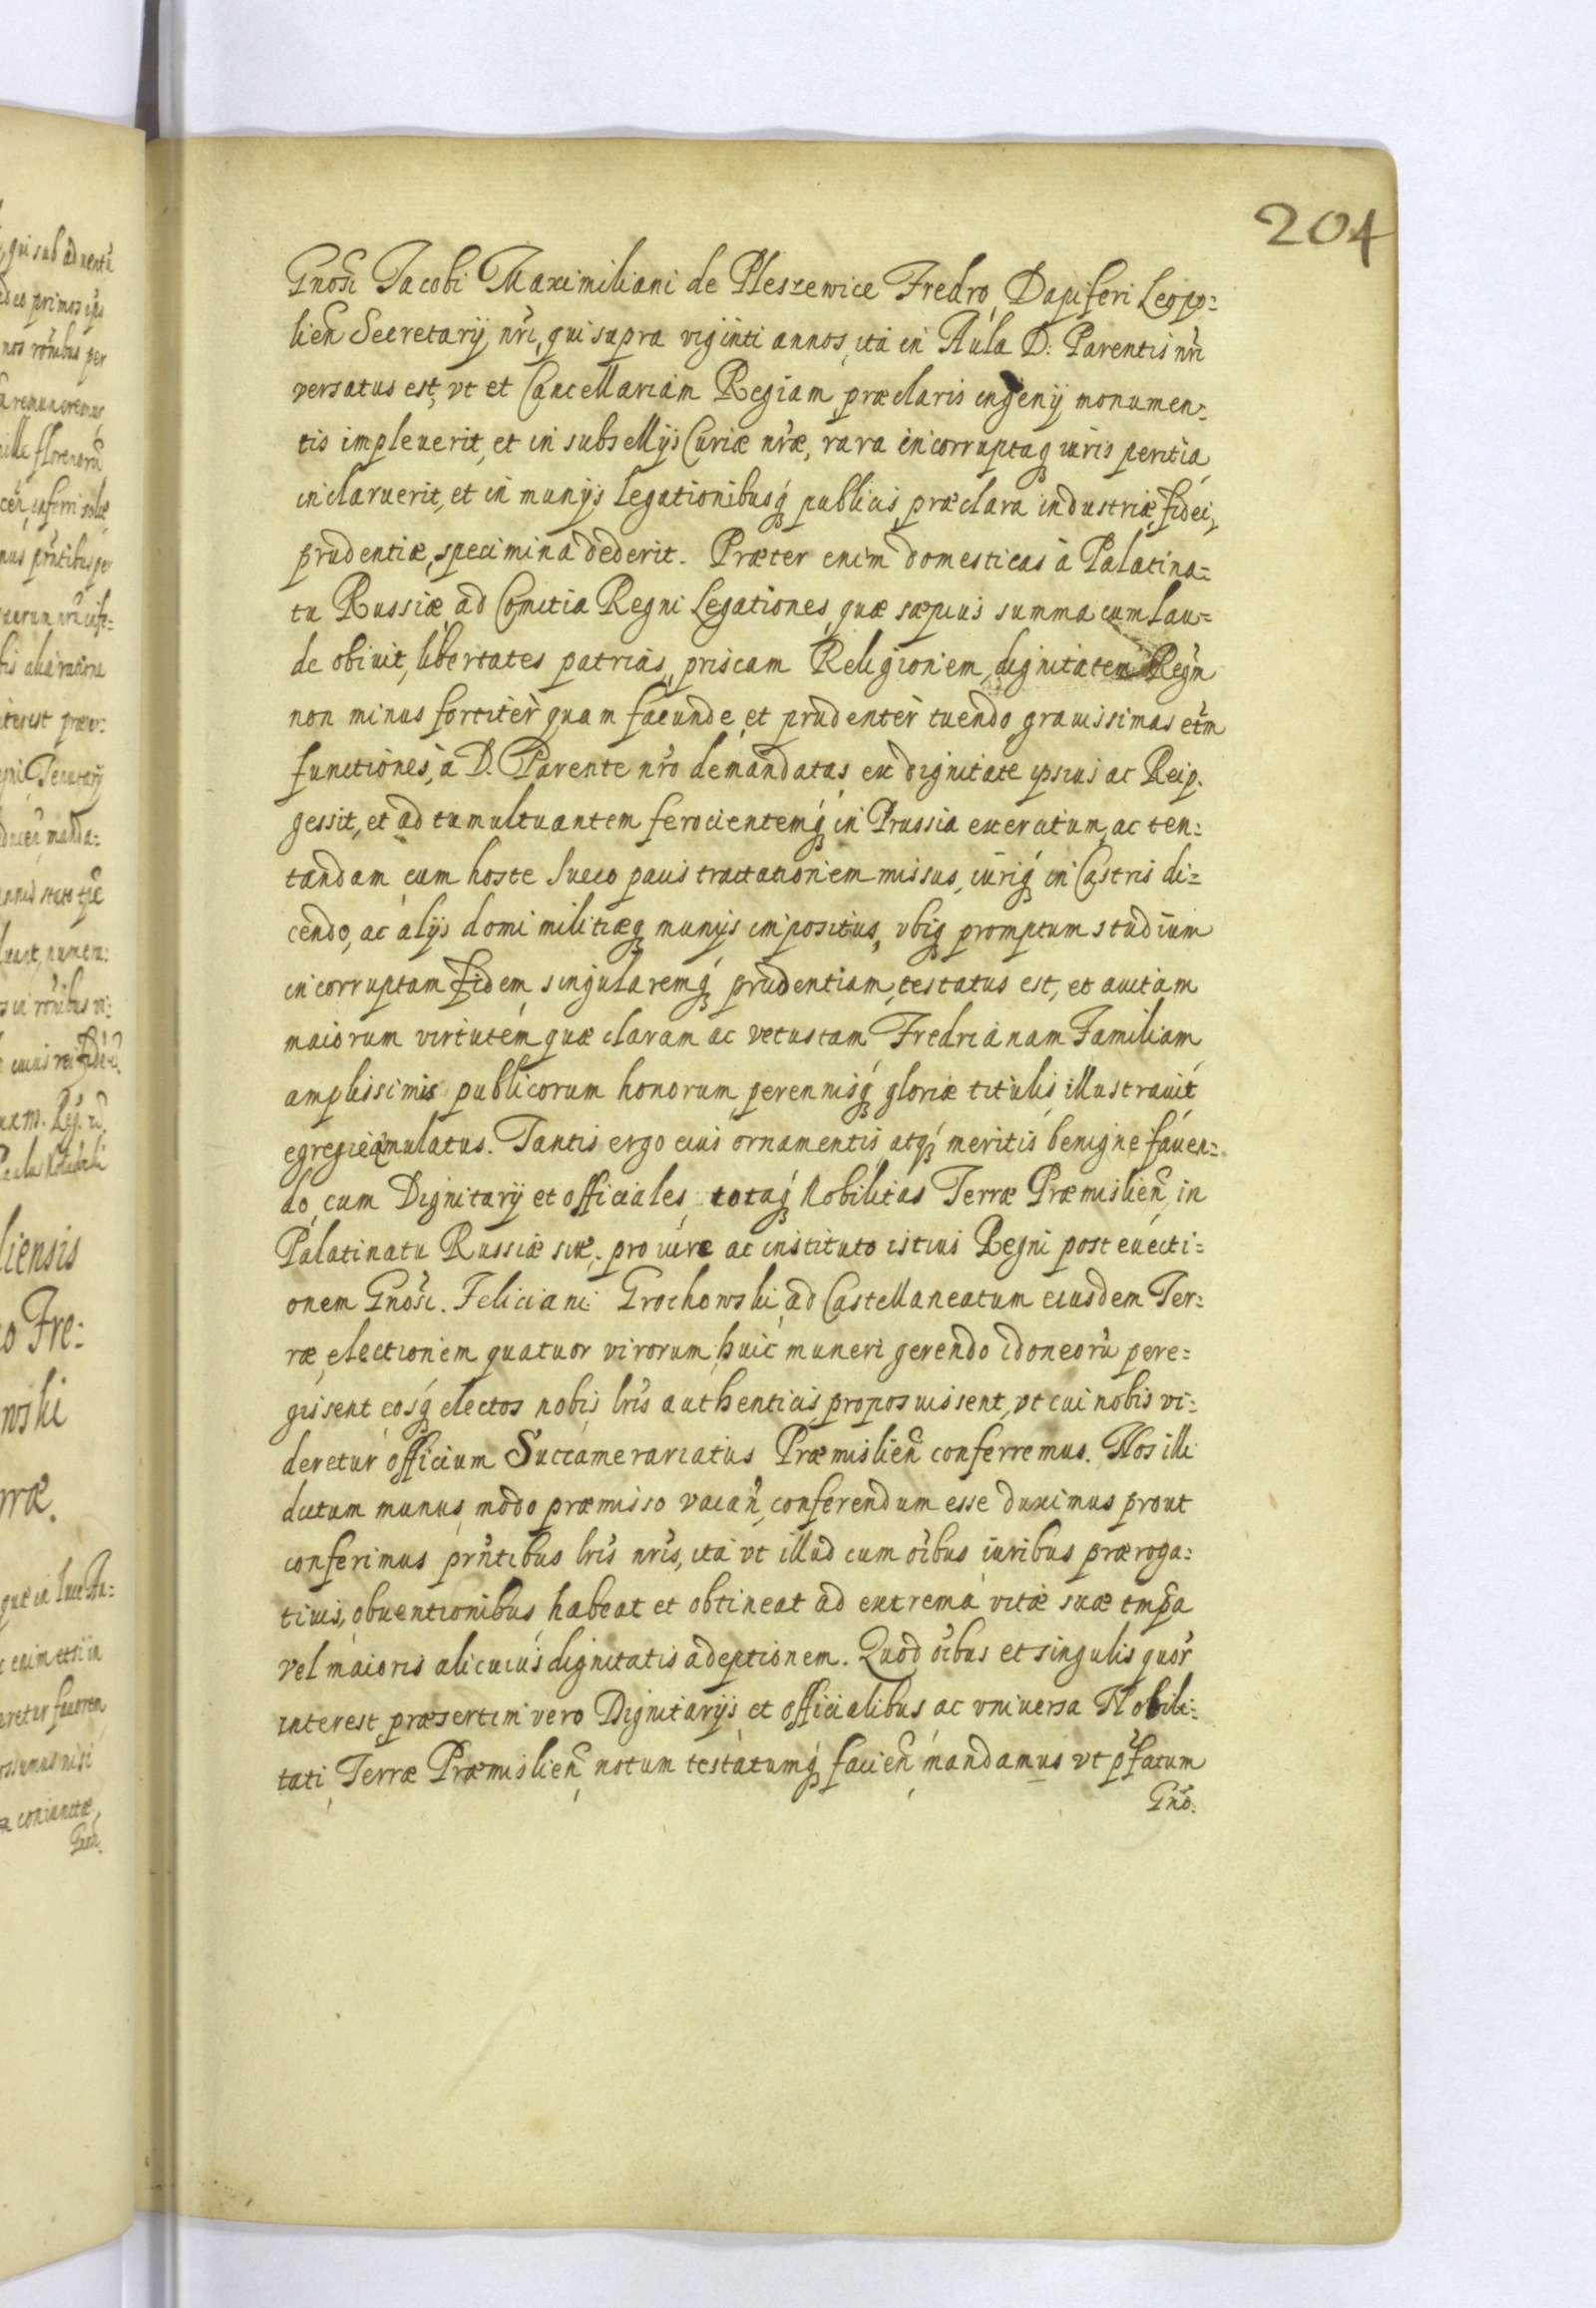 204
Gnosi Jacobi Maximiliani de Pleszewice Fredro, Dapiferi Leopo=
lien Secretarij nri, qui supra viginti annos, ita in Aula D: Parentis nri
versatus est, vt et Cancellariam Regiam præclaris ingenij monumen=
tis impleuerit, et in subsellijs Curiæ nræ, rara incorruptaq iuris peritia
inclaruerit, et in munijs legationibusq publicis, præclara industriæ, fidei,
prudentiæ, specimina dederit. Præter enim domesticas à Palatina=
tu Russiæ, ad Comitia Regni Legationes, quæ sæpius summa cum lau=
de obiuit, libertates patrias, priscam Religionem, dignitatem Regni
non minus fortiter quam facunde, et prudenter tuendo, grauissimas etm
functiones, à D. Parente nro demandatas, ex dignitate ipsius ac Reip.
gessit, et ad tumultuantem ferocientemq in Prussia exercitum, ac ten=
tandam cum hoste Sueco pacis tractationem missus, iuriq in Castris di=
cendo, ac alijs domi militiæq munijs impositus, vbiq promptum studium
incorruptam fidem, singularemq prudentiam, testatus est, et auitam
maiorum virtutem, quæ claram ac vetustam Fredrianam Familiam
amplissimis publicorum honorum, perennisq gloriæ titulis illustrauit
egregie æmulatus. Tantis ergo eius ornamentis, atq meritis benigne fauen=
do, cum Dignitarij et officiales, totaq Nobilitas Terræ Præmislien, in
Palatinatu Russiæ sitæ, pro iure ac instituto istius Regni post euecti=
onem Gnosi. Feliciani Grochowski, ad Castellaneatum eiusdem Ter=
ræ, electionem quatuor virorum, huic muneri gerendo idoneorũ pere=
gissent, eosq electos nobis lris authenticis proposuissent, vt cui nobis vi=
deretur officium Succamerariatus Præmislien conferremus. Nos illi
dictum munus, modo præmisso vacan, conferendum esse duximus prout
conferimus prntibus lris nris, ita vt illud cum oibus iuribus præroga=
tiuis, obuentionibus, habeat et obtineat ad extrema vitæ suæ tmpa
vel maioris alicuius dignitatis adeptionem. Quod oibus et singulis quor
interest præsertim vero Dignitarijs et officialibus ac vniuersa Nobili=
tati, Terræ Præmislien, notum testatumq facien, mandamus vt pfatum
Gno.